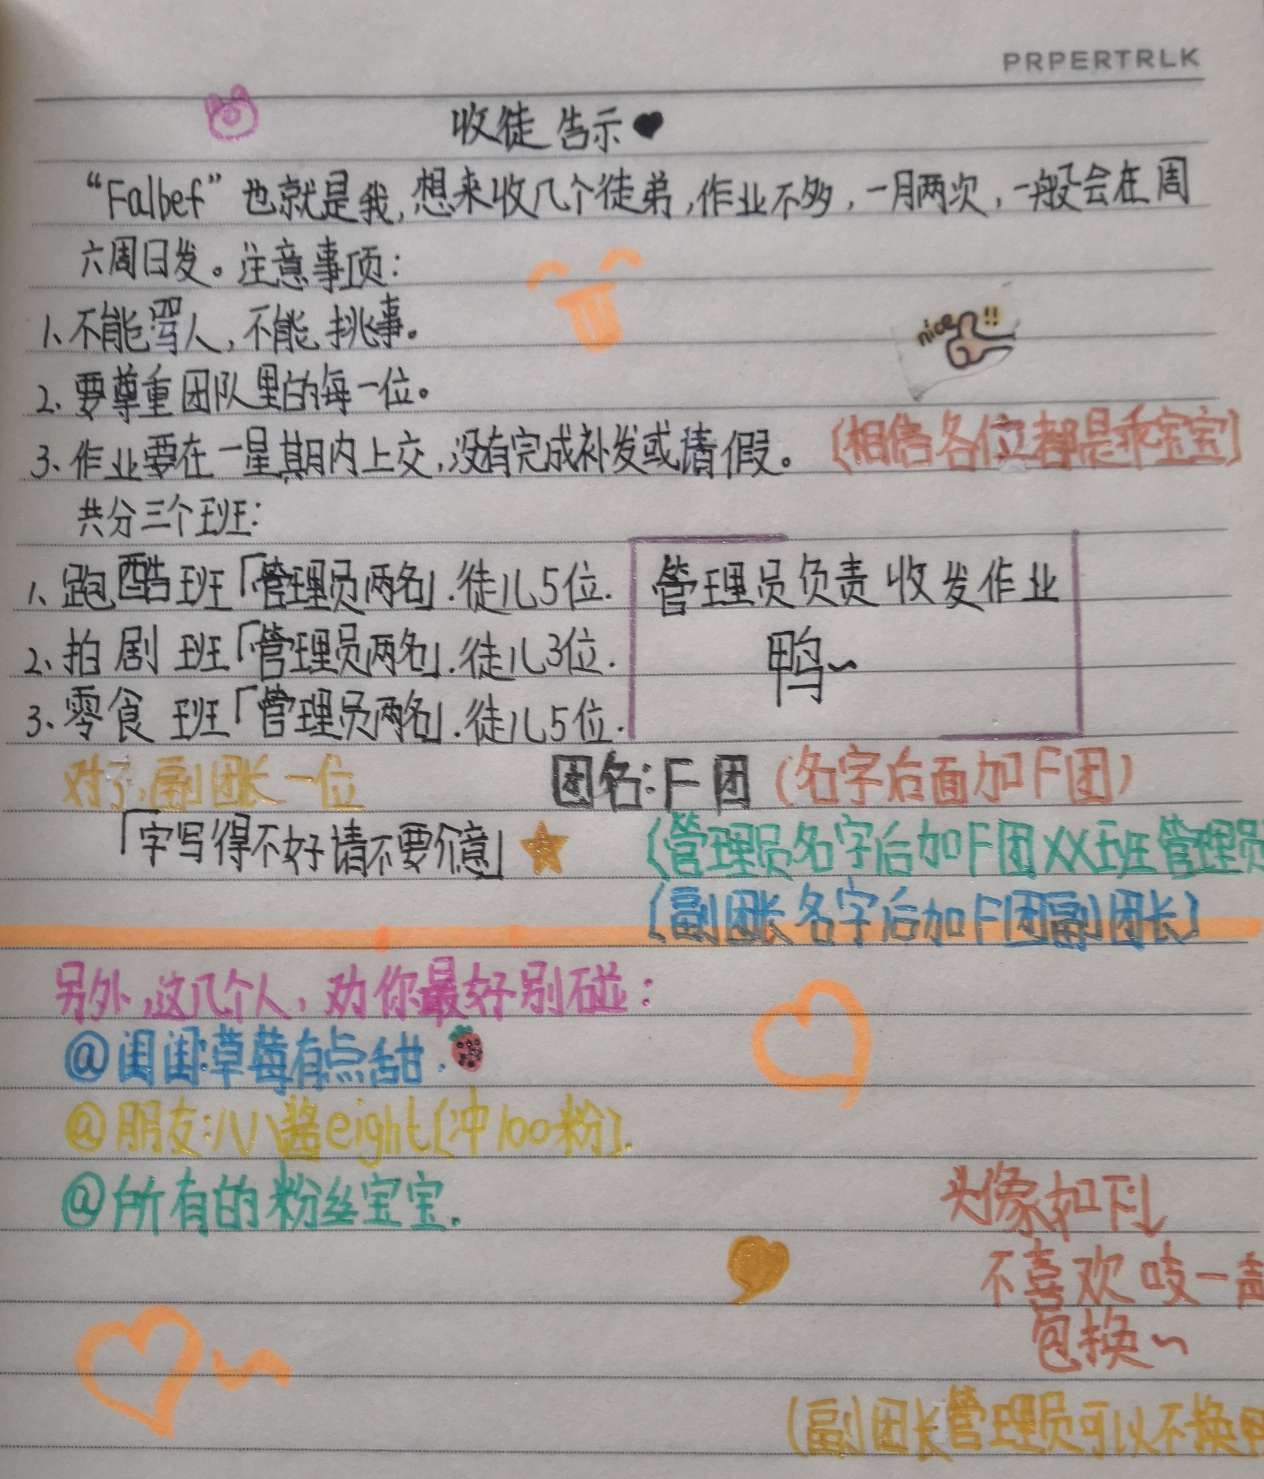 PRPERTRLK
收徒告示
“Falbef”也就是我,想来收几个徒弟,作业不多,一月两次,一般会在周
六周日发。注意事项:
nice!!
1、不能骂人,不能挑事。
2、要尊重团队里的每一位。
3、作业要在一星期内上交,没有完成补发或请假。(相信各位都是乖宝宝)
共分三个班:
1、跑酷班「管理员两名」.徒儿5位.
2、拍剧班「管理员两名」.徒儿3位.
3、零食班「管理员两名」.徒儿5位.
管理员负责收发作业
鸭~
对了,副团长一位
团名:F团(名字后面加F团)
「字写得不好请不要介意」
(管理员名字后加F团XX班管理员
(副团长名字后加F团副团长)
另外,这几个人,劝你最好别碰:
@闺闺:草莓有点甜.
@朋友:八八酱eight[冲100粉].
@所有的粉丝宝宝.
头像如下↓
不喜欢吱一声
包换~
(副团长管理员可以不换